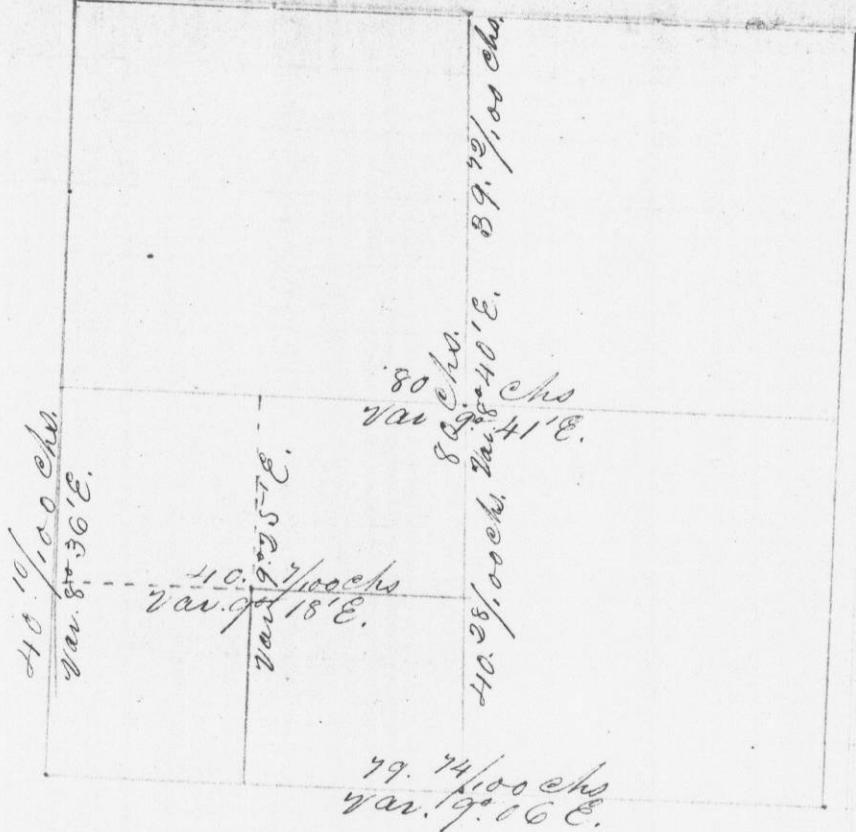 39.72/100 chs.
80 chs
Var. 9° 41' E.
80 chs.
Var. 8° 40' E.
40.10/100 chs.
Var. 8° 36' E.
Var. 9° 25' E.
40.7/100 chs
Var. 9° 18' E.
40.28/100 chs.
79.74/100 chs
Var. 9° 06 E.